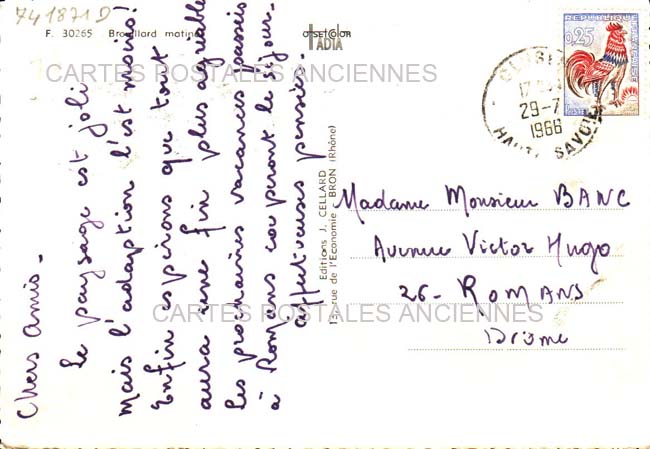 741871D
F. 30265 Brouillard matinal
OFFSET COLOR
ADIA
REPUBLIQUE FRANÇAISE
0,25
POSTES
29-7
1966
HAUTE SAVOIE
CARTES POSTALES ANCIENNES
Chers amis.
Le paysage est joli
mais l'adaption l'est moins!
Enfin espérons que tout
aura une fin plus agréable
Les prochaines vacances passées
à Romans couperont le séjour.
affectueuses pensées.
Editions J. CELLARD
rue de l'Economie - BRON (Rhône)
Madame Monsieur BANC
Avenue Victor Hugo
26 - ROMANS
Drôme
CARTES POSTALES ANCIENNES